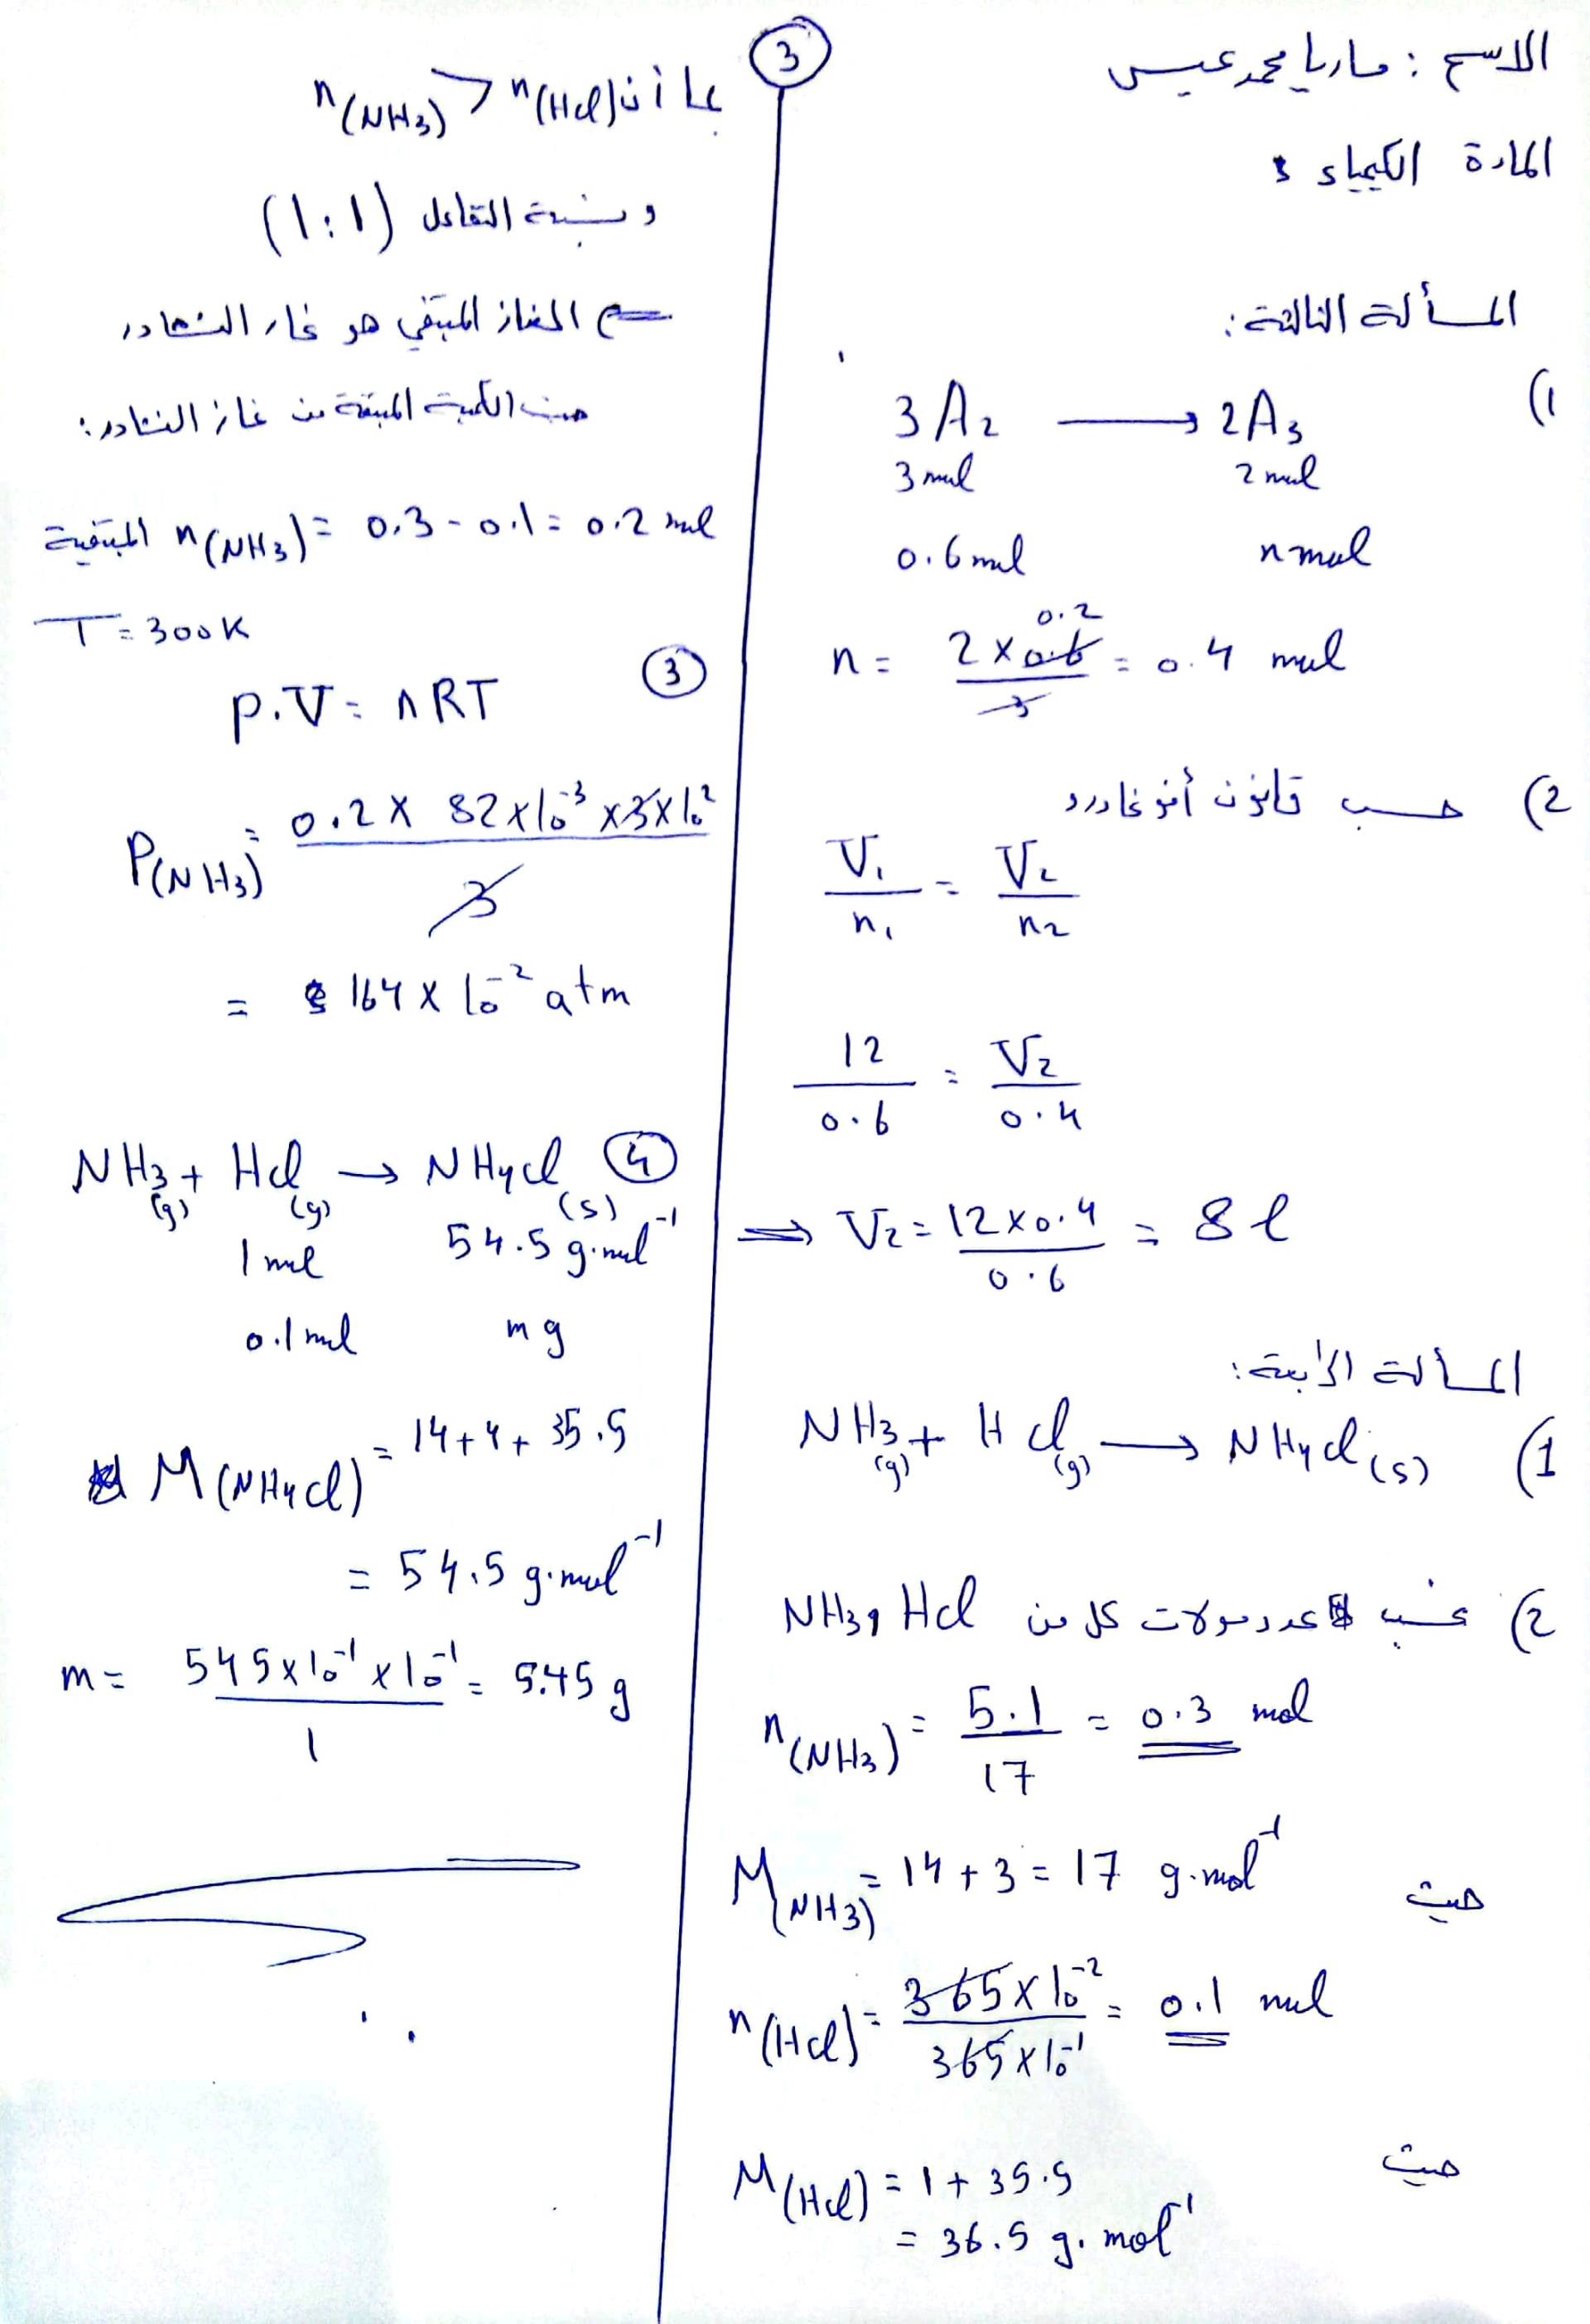 الاسم : ماريا محمد عيسى
المادة الكيمياء :
المسألة الثالثة :
1) 3A₂ → 2A₃
3 mol 2 mol
0.6 mol n mol
n = 2 × 0.6 / 3 = 0.4 mol
0.2
2) حسب قانون أفوغادرو
V₁ / n₁ = V₂ / n₂
12 / 0.6 = V₂ / 0.4
⇒ V₂ = 12 × 0.4 / 0.6 = 8 l
المسألة الرابعة :
1) NH₃(g) + HCl(g) → NH₄Cl(s)
2) نحسب عدد مولات كل من NH₃, HCl
n(NH₃) = 5.1 / 17 = 0.3 mol
حيث M(NH₃) = 14 + 3 = 17 g.mol⁻¹
n(HCl) = 365 × 10⁻² / 365 × 10⁻¹ = 0.1 mol
حيث M(HCl) = 1 + 35.5
= 36.5 g.mol⁻¹
3 بما أن n(NH₃) > n(HCl)
و نسبة التفاعل (1:1)
⇒ الغاز المتبقي هو غاز النشادر
حيث الكمية المتبقية من غاز النشادر :
المتبقية n(NH₃) = 0.3 - 0.1 = 0.2 mol
T = 300 K
3 P.V = nRT
P(NH₃) = 0.2 × 82 × 10⁻³ × 3 × 10² / 3
= 164 × 10⁻² atm
4 NH₃(g) + HCl(g) → NH₄Cl(s)
1 mol 54.5 g.mol⁻¹
0.1 mol m g
M(NH₄Cl) = 14 + 4 + 35.5
= 54.5 g.mol⁻¹
m = 545 × 10⁻¹ × 10⁻¹ / 1 = 5.45 g